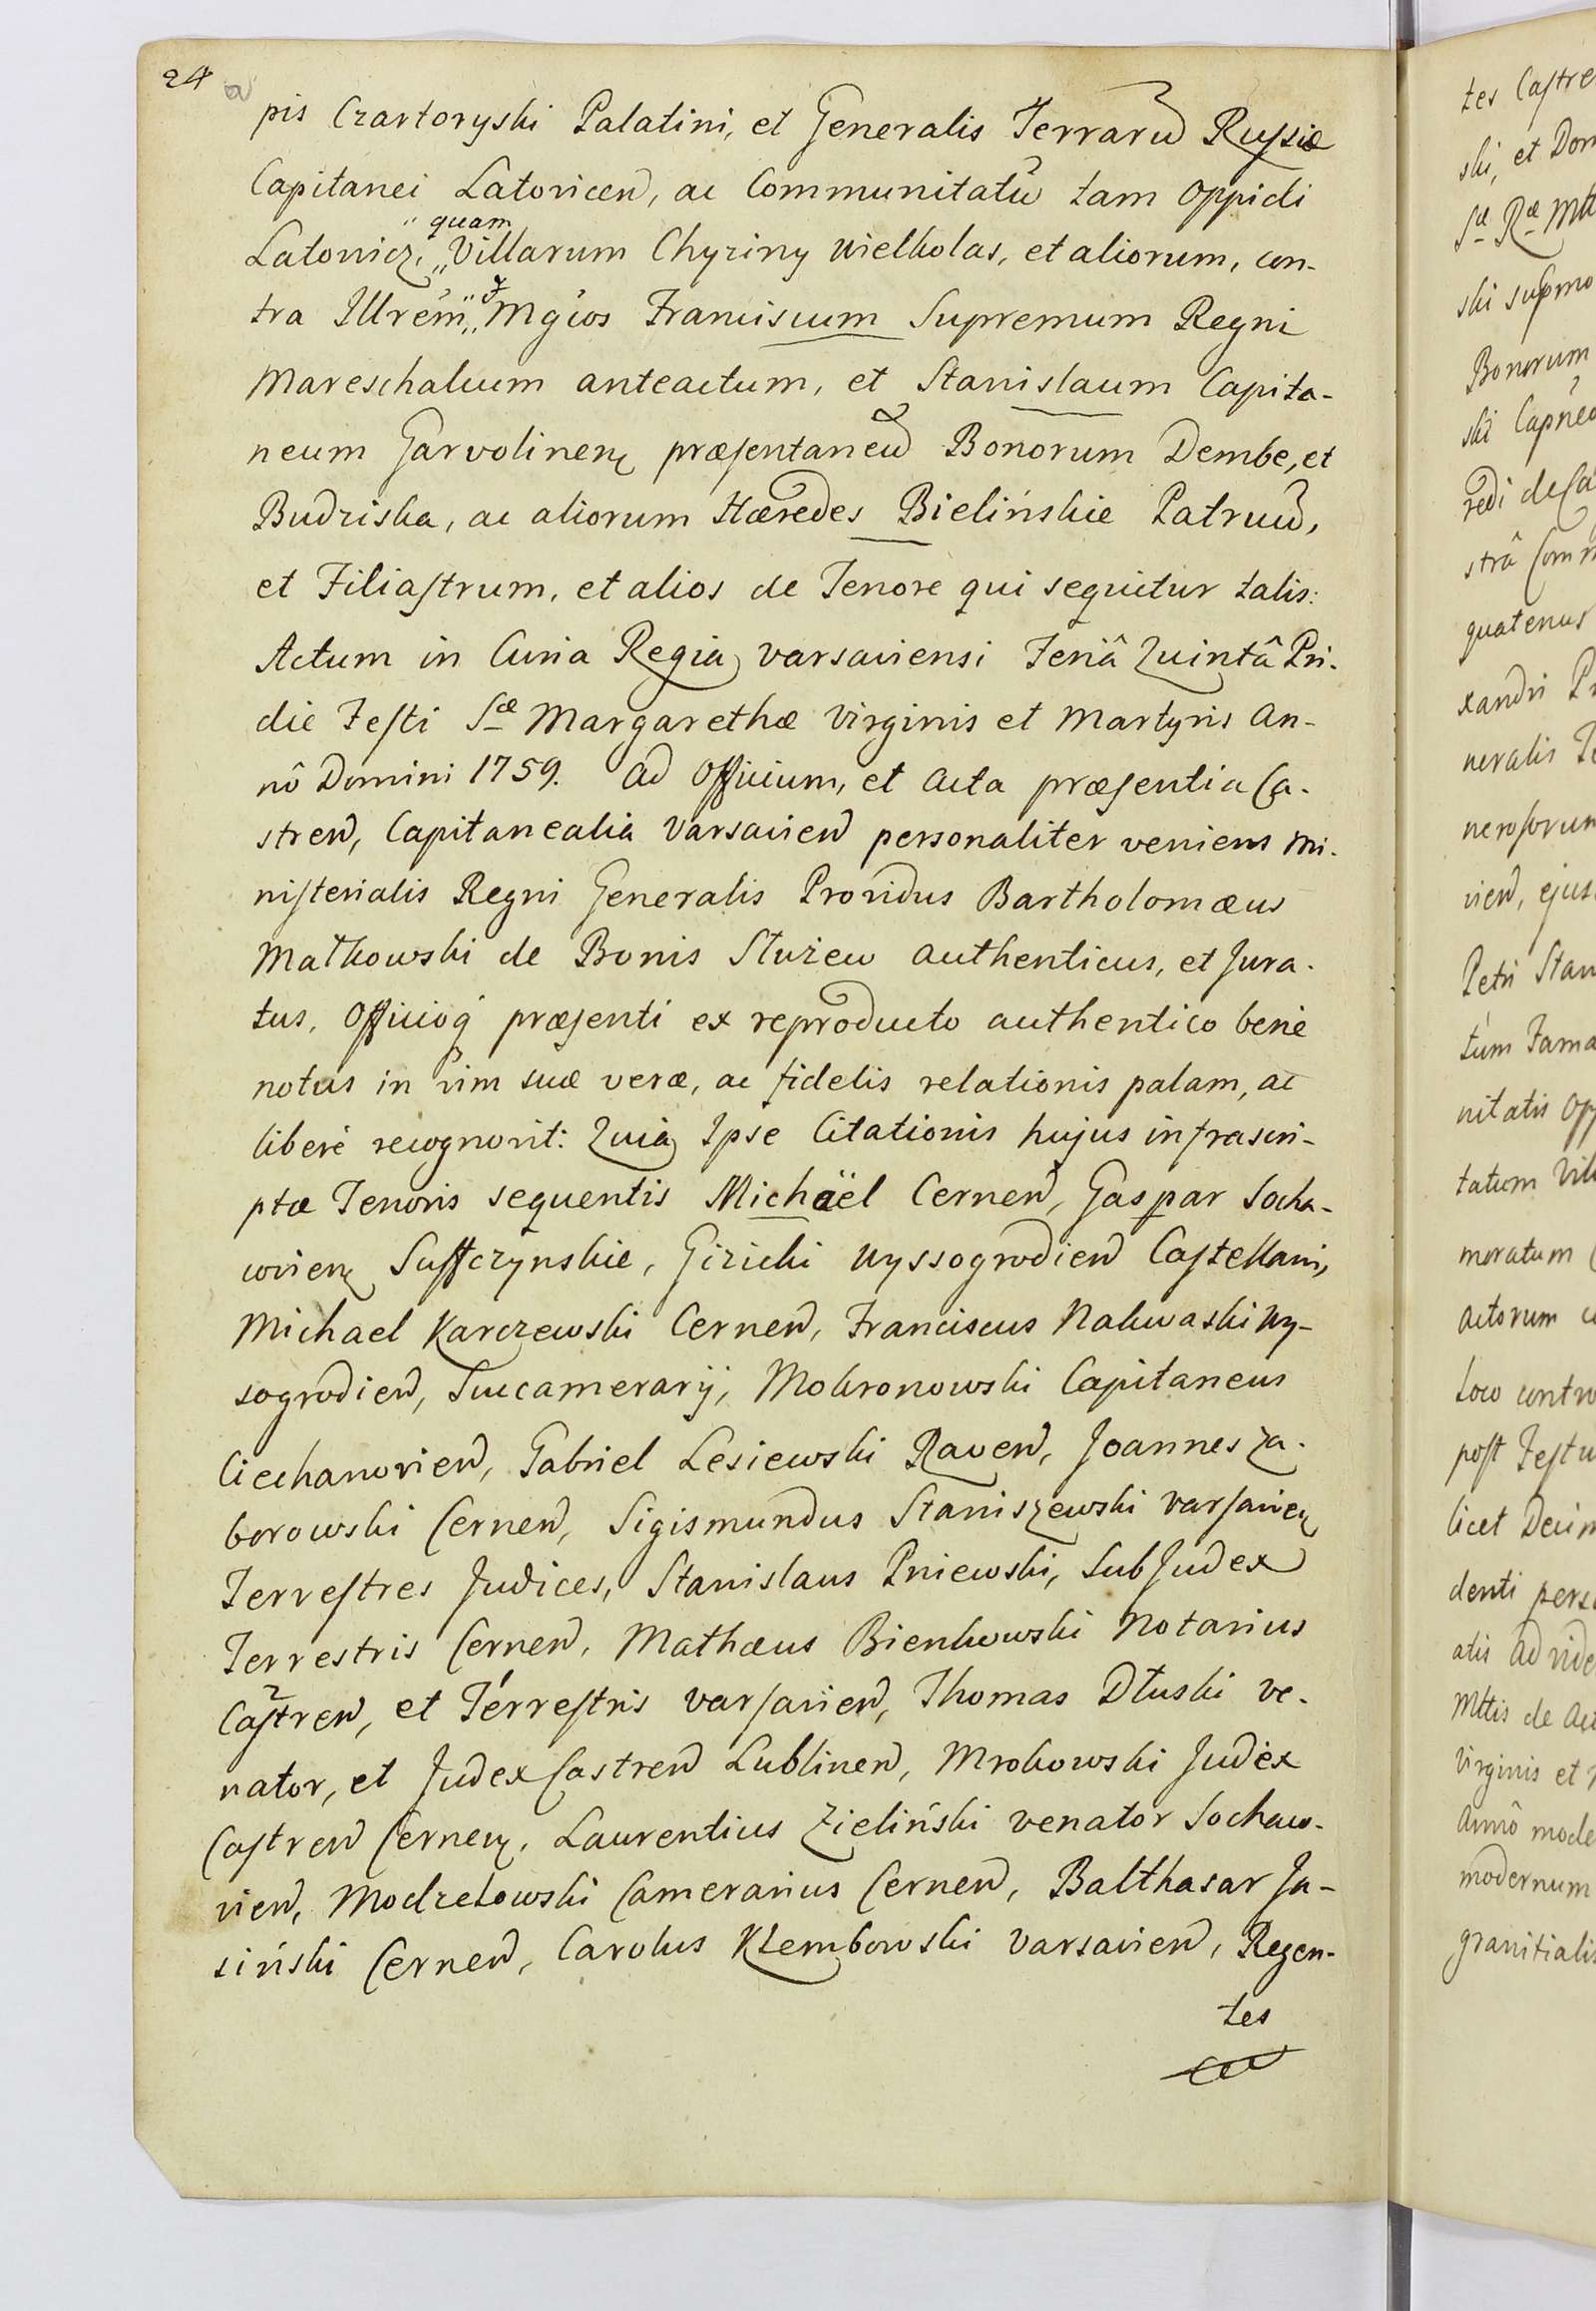 24
pis Czartoryski Palatini, et Generalis Terraru Russiæ
Capitanei Latovicen, ac Communitatu tam Oppidi
quam
Latowicz, Villarum Chyziny Wielkolas, et aliorum, con-
tra Illrem, Mgcos Franciscum Supremum Regni
Mareschalcum anteactum, et Stanislaum Capita-
neum Garvolinen præsentaneu Bonorum Dembe, et
Budziska, ac aliorum Hæredes Bielińskie Patruu,
et Filiastrum, et alios de Tenore qui sequitur talis:
Actum in Curia Regia Varsaviensi Feriâ Quintâ Pri-
die Festi Sæ Margarethæ Virginis et Martyris An-
nô Domini 1759. Ad Officium, et Acta præsentia Ca-
stren, Capitanealia Varsavien personaliter veniens Mi-
nisterialis Regni Generalis Providus Bartholomæus
Matkowski de Bonis Stuzew authenticus, et Jura-
tus, Officioq præsenti ex reproducto authentico benè
notus in vim suæ veræ, ac fidelis relationis palam, ac
liberè recognovit: Quia Ipse Citationis hujus infrascri-
ptæ Tenoris sequentis Michaël Cernen, Gaspar Socha-
covien Suffczynskie, Gizicki Wyssogrodien Castellani,
Michael Karczewski Cernen, Franciscus Nakwaski Wy-
sogrodien, Succamerarij, Mokronowski Capitaneus
Ciechanovien, Gabriel Lesiewski Raven, Joannes Za-
borowski Cernen, Sigismundus Staniszewski Varsavien
Terrestres Judices, Stanislaus Pniewski, SubJudex
Terrestris Cernen, Mathæus Bienkowski Notarius
Castren, et Terrestris Varsavien, Thomas Dłuski Ve-
nator, et Judex Castren Lublinen, Mrokowski Judex
Castren Cernen, Laurentius Zieliński Venator Sochaw-
vien, Modzelowski Camerarius Cernen, Balthasar Ja-
siński Cernen, Carolus Klembowski Varsavien, Regen-
tes
tes Castre
ski, et Dom
Sæ Ræ Mtt
ski
Bonorum
ski Capneo
redi
strâ Comm
quatenus
xandri Pr
neralis Te
nerosorum
vien, ejus
Petri Stan
tùm Fama
nitatis Opp
tatum Vill
moratum
Actorum
Loco contro
post Festu
licet Decim
denti perso
atis ad vide
Mttis de Ac
Virginis et
Annô mode
modernum
granitialis